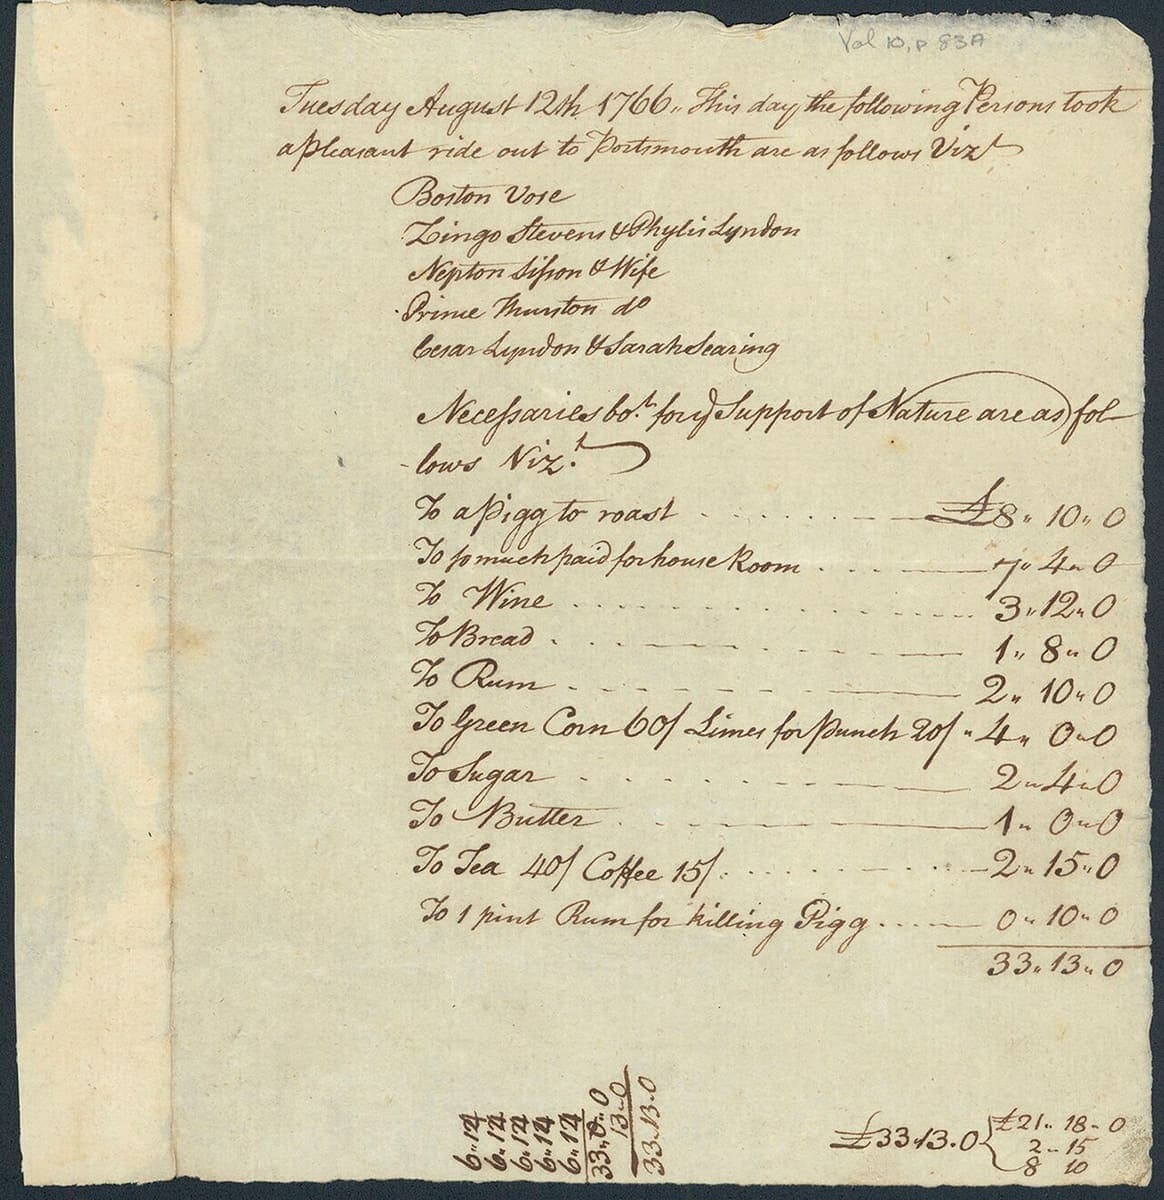 Vol 10, p 83A
Tuesday August 12th 1766,, This day the following Persons took
a Pleasant ride out to Portsmouth are as follows Vizt
Boston Vose
Zingo Stevens & Phylis Lyndon
Nepton Sisson & Wife
Prince Thurston do
Cesar Lyndon & Sarah Searing
Necessaries bo.t for ye Support of Nature are as) fol
-lows Viz.t
To a Pigg to roast £8,, 10,, 0
To so much paid for house Room 7,, 4,, 0
To Wine 3,, 12,, 0
To Bread 1,, 8,, 0
To Rum 2,, 10,, 0
To Green Corn 60/ Limes for Punch 20/ 4,, 0,, 0
To Sugar 2,, 4,, 0
To Butter 1,, 0,, 0
To Tea 40/ Coffee 15/ 2,, 15,, 0
To 1 pint Rum for killing Pigg 0,, 10,, 0
33,, 13,, 0
6,, 12
6,, 12
6,, 12
6,, 12
6,, 12
33,, 0,, 0
13,, 0
33,, 13,, 0
£33,, 13,, 0 { £21,, 18,, 0
2,, 15
8 10